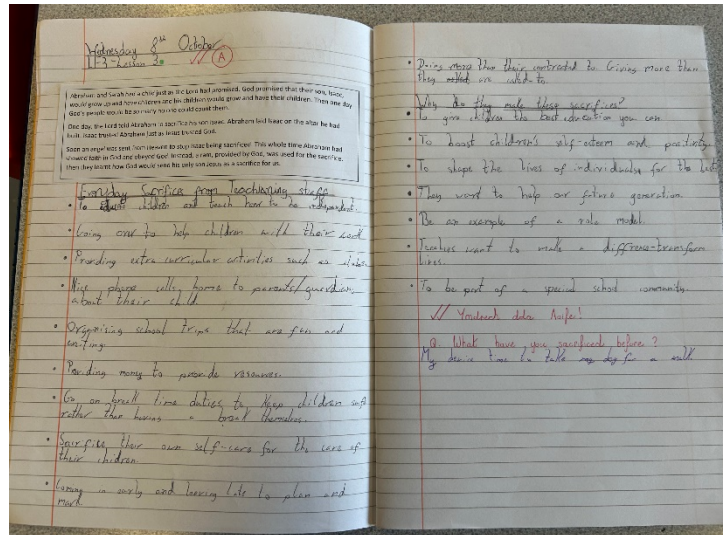 Wednesday 8th October
L.I-3-Lesson 3
A
Abraham and Sarah had a child just as the Lord had promised. God promised that their son, Isaac,
would grow up and have children and his children would grow and have their children. Then one day
God's people would be so many no one could count them.
One day, the Lord told Abraham to sacrifice his son Isaac. Abraham laid Isaac on the altar he had
built. Isaac trusted Abraham just as Jesus trusted God.
Soon an angel was sent from Heaven to stop Isaac being sacrificed! This whole time Abraham had
showed faith in God and obeyed God. Instead, a ram, provided by God, was used for the sacrifice.
then they learnt how God would send his only son Jesus as a sacrifice for us.
Everyday Sacrifice from Teach staff
• To children and teach how to be independent.
• Going over to help children with their work
• Providing extra curricular activities such as clubs.
• Nice phone calls home to parents/guardian
about their child
• Organising school trips that are fun and
exciting.
• money to provide resources.
• Go on break time duties to keep children safe
rather than having a break themselves.
• Sacrifice their own self-care for the care of
their children
• Coming in early and leaving late to plan and
mark
• Doing more than their contracted to. Giving more than
they are asked to.
Why do they make these sacrifices?
• To give children the best education you can
• To boost children's self-esteem and positivity.
• To shape the lives of individuals for the best
• They want to help our future generation.
• Be an example of a role model.
• Teachers want to make a difference-transform
lives.
• To be part of a special school community.
Ymdrech dda Aoife!
Q. What have you sacrificed before?
My device time to take my dog for a walk